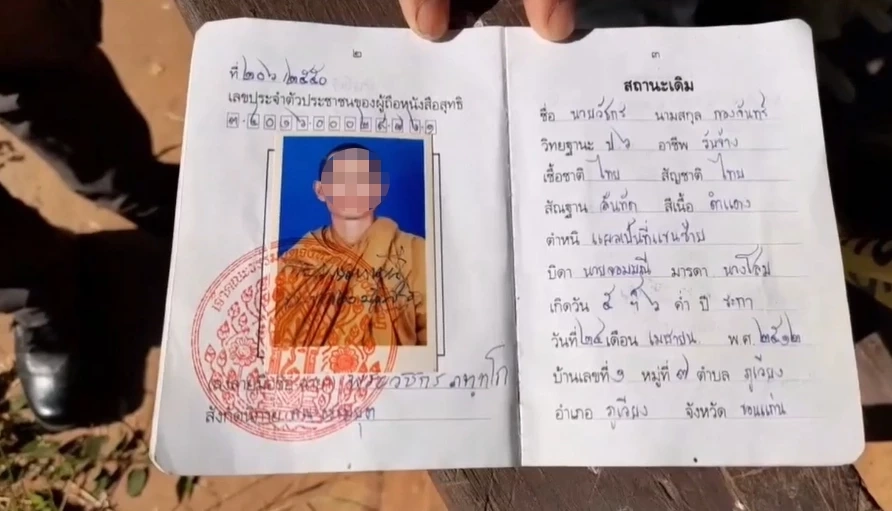 ๒
ที่ ๒๐๖/๒๕๕๐
เลขประจำตัวประชาชนของผู้ถือหนังสือสุทธิ
พระวชิกร ภทฺทโก
สังกัดนิกาย
๓
สถานะเดิม
ชื่อ นายวัชกร นามสกุล กองจันทร์
วิทยฐานะ ป๖ อาชีพ รับจ้าง
เชื้อชาติ ไทย สัญชาติ ไทย
สัณฐาน สันทัด สีเนื้อ ดำแดง
ตำหนิ แผลเป็นที่แขนซ้าย
บิดา นายจอมมณี มารดา นางโสม
เกิดวัน ๕ ฯ ๖ ค่ำ ปี ระกา
วันที่ ๒๔ เดือน เมษายน พ.ศ. ๒๕๑๒
บ้านเลขที่ ๑ หมู่ที่ ๗ ตำบล ภูเวียง
อำเภอ ภูเวียง จังหวัด ขอนแก่น